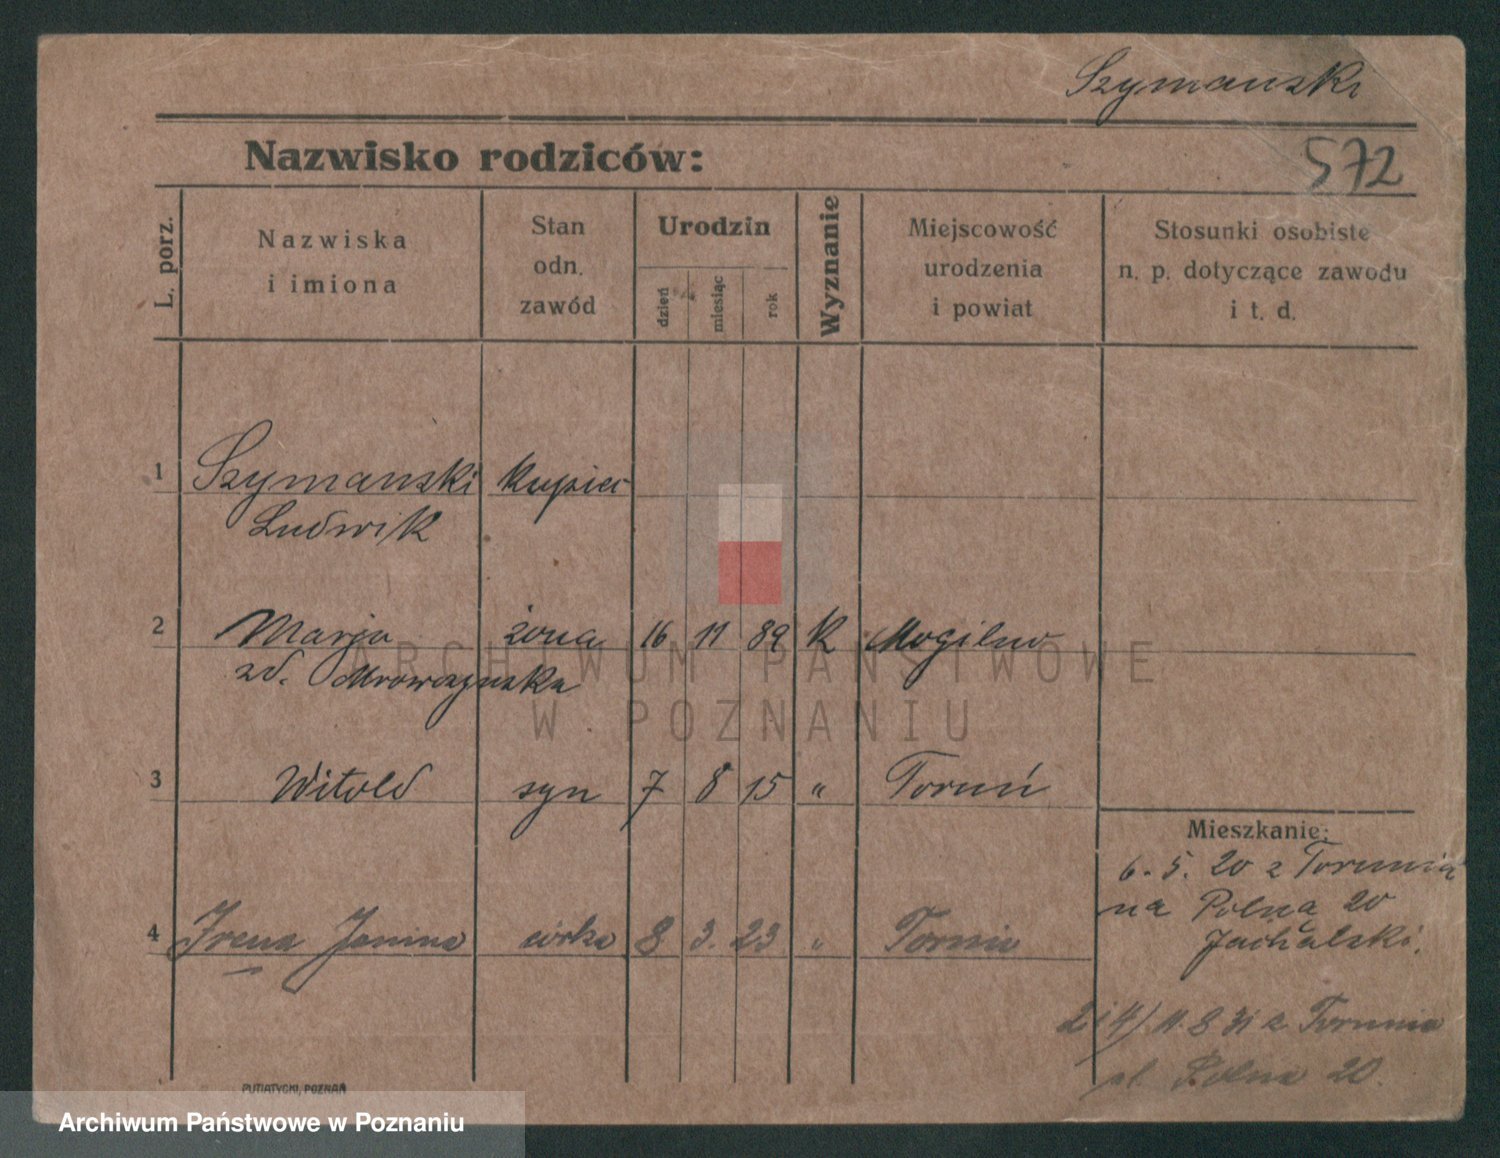 Szymanski
Nazwisko rodziców:
572
L. porz.
Nazwiska
i imiona
Stan
odn.
zawód
Urodzin
dzień
miesiąc
rok
Wyznanie
Miejscowość
urodzenia
i powiat
Stosunki osobiste
n. p. dotyczące zawodu
i t. d.
1 Szymanski kupiec
Ludwik
2 Marja żona 16 11 89 K Mogilno
zd. Mrowczynska
ARCHIWUM PAŃSTWOWE
W POZNANIU
3 Witold syn 7 8 15 " Toruń
Mieszkanie:
6. 5. 20 z Torunia
na Polna 20
Jachalski.
4 Irena Janina córka 8 3. 23 " Toruń
2 i 4) 11. 8 31 z Torunia
ul. Polna 20.
PUTIATYCKI, POZNAŃ
Archiwum Państwowe w Poznaniu